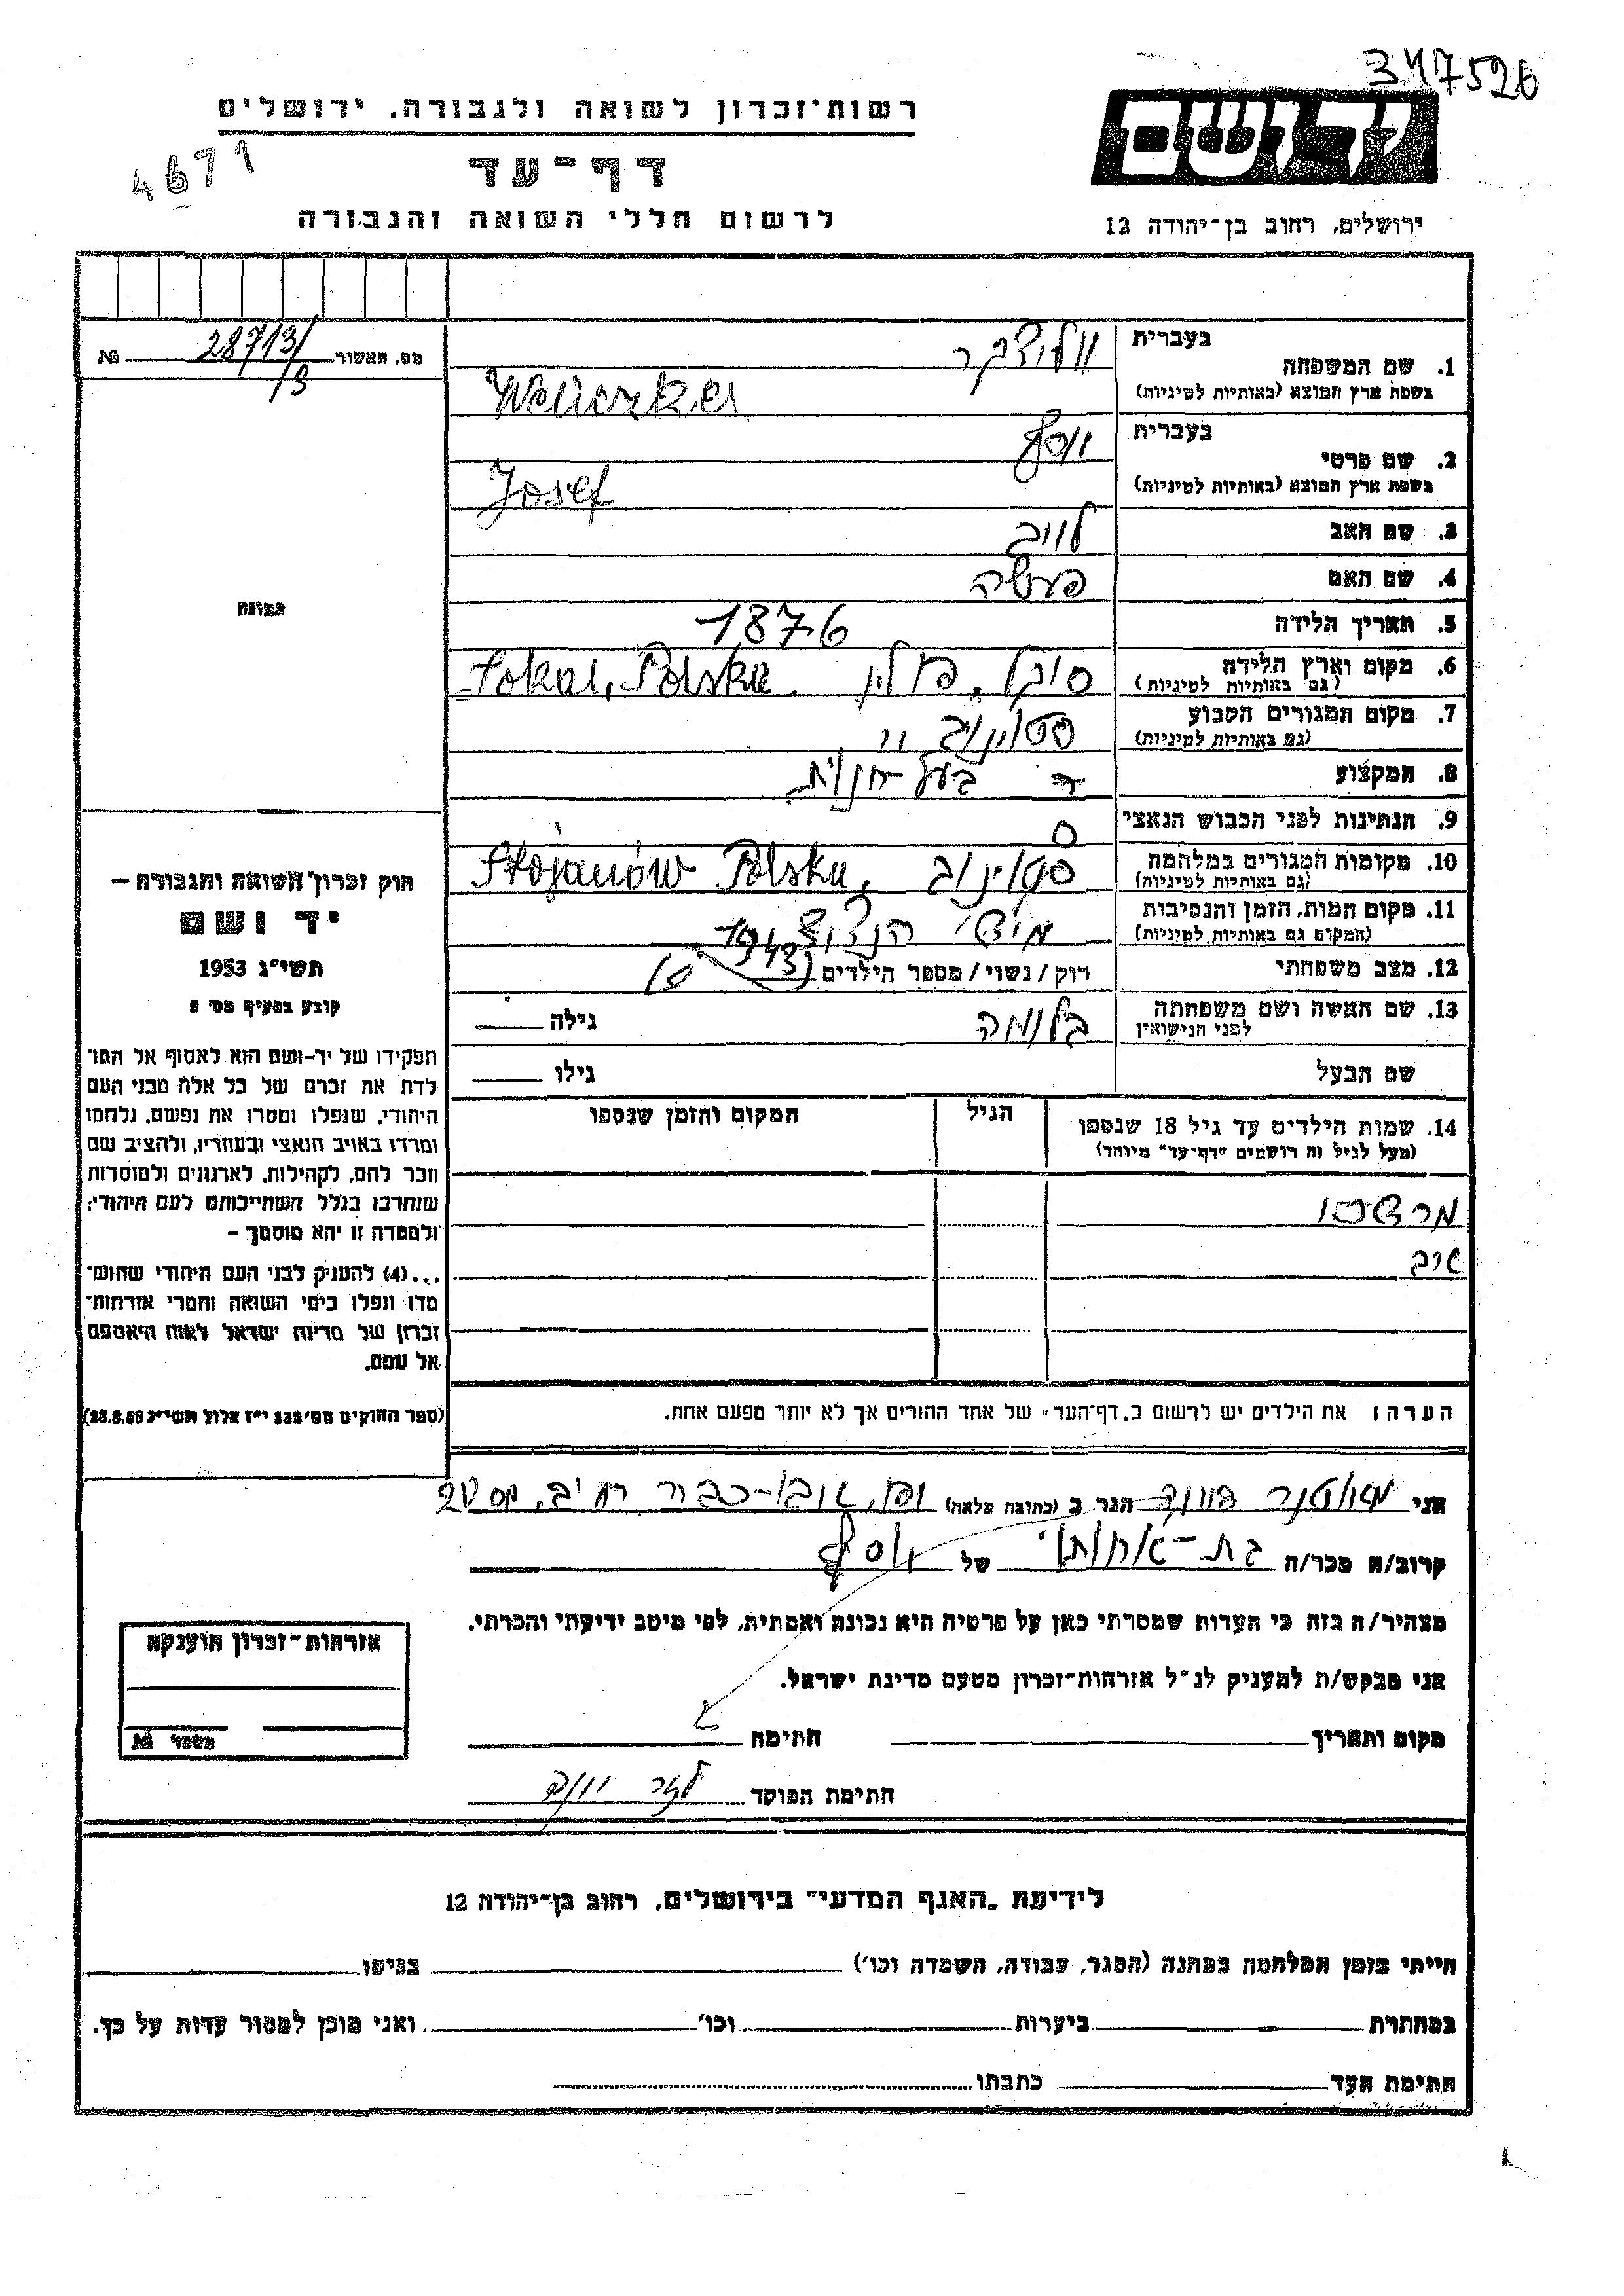 347526
רשות־זכרון לשואה ולגבורה, ירושלים
יד ושם
4671
דף־עד
לרשום חללי השואה והגבורה
ירושלים, רחוב בן־יהודה 12
מס. תאשור 28713/3 №
1. שם המשפחה
בעברית
בשפת ארץ המוצא (באותיות לטיניות)
2. שם פרטי
בעברית יוסף
בשפת ארץ המוצא (באותיות לטיניות) Josef
3. שם האב לייב
4. שם האם
5. תאריך הלידה 1876
6. מקום וארץ הלידה סוקל, פולין Sokal, Polska
(גם באותיות לטיניות)
7. מקום המגורים הקבוע סטוינוב
(גם באותיות לטיניות)
8. המקצוע בעל חנות
9. הנתינות לפני הכבוש הנאצי
10. מקומות המגורים במלחמה סטוינוב Stojanów Polska,
(גם באותיות לטיניות)
11. מקום המות, הזמן והנסיבות 1943
(המקום גם באותיות לטיניות)
12. מצב משפחתי רווק / נשוי / מספר הילדים
13. שם האשה ושם משפחתה בלומה גילה
לפני הנישואין
שם הבעל גילו
14. שמות הילדים עד גיל 18 שנספו
(מעל לגיל זה רושמים "דף־עד" מיוחד)
הגיל
המקום והזמן שנספו
הערה: את הילדים יש לרשום ב„דף־העד" של אחד ההורים אך לא יותר מפעם אחת.
תמונה
חוק זכרון השואה והגבורה –
יד ושם
תשי"ג 1953
קובע בסעיף מס' 2
תפקידו של יד-ושם הוא לאסוף אל המו־
לדת את זכרם של כל אלה מבני העם
היהודי, שנפלו ומסרו את נפשם, נלחמו
ומרדו באויב הנאצי ובעוזריו, ולהציב שם
וזכר להם, לקהילות, לארגונים ולמוסדות
שנחרבו בגלל השתייכותם לעם היהודי;
ולמטרה זו יהא מוסמך –
...(4) להעניק לבני העם היהודי שהוש־
מדו ונפלו בימי השואה והמרי אזרחות־
זכרון של מדינת ישראל לאות היאספם
אל עמם.
(ספר החוקים מס' 132 י"ז אלול תשי"ג 28.8.53)
אני הגר ב (כתובת מלאה)
קרוב/ה מכר/ה בת-אחותו של יוסף
מצהיר/ה בזה כי העדות שמסרתי כאן על פרטיה היא נכונה ואמתית, לפי מיטב ידיעתי והכרתי.
אני מבקש/ת להעניק לנ"ל אזרחות־זכרון מטעם מדינת ישראל.
מקום ותאריך חתימה
חתימת הפוקד
אזרחות־זכרון הוענקה
מספר №
לידיעת „האגף המדעי" בירושלים, רחוב בן־יהודה 12
הייתי בזמן המלחמה במחנה (הסגר, עבודה, השמדה וכו') בגיטו
במחתרת ביערות וכו' ואני מוכן למסור עדות על כך.
חתימת העד כתבתו